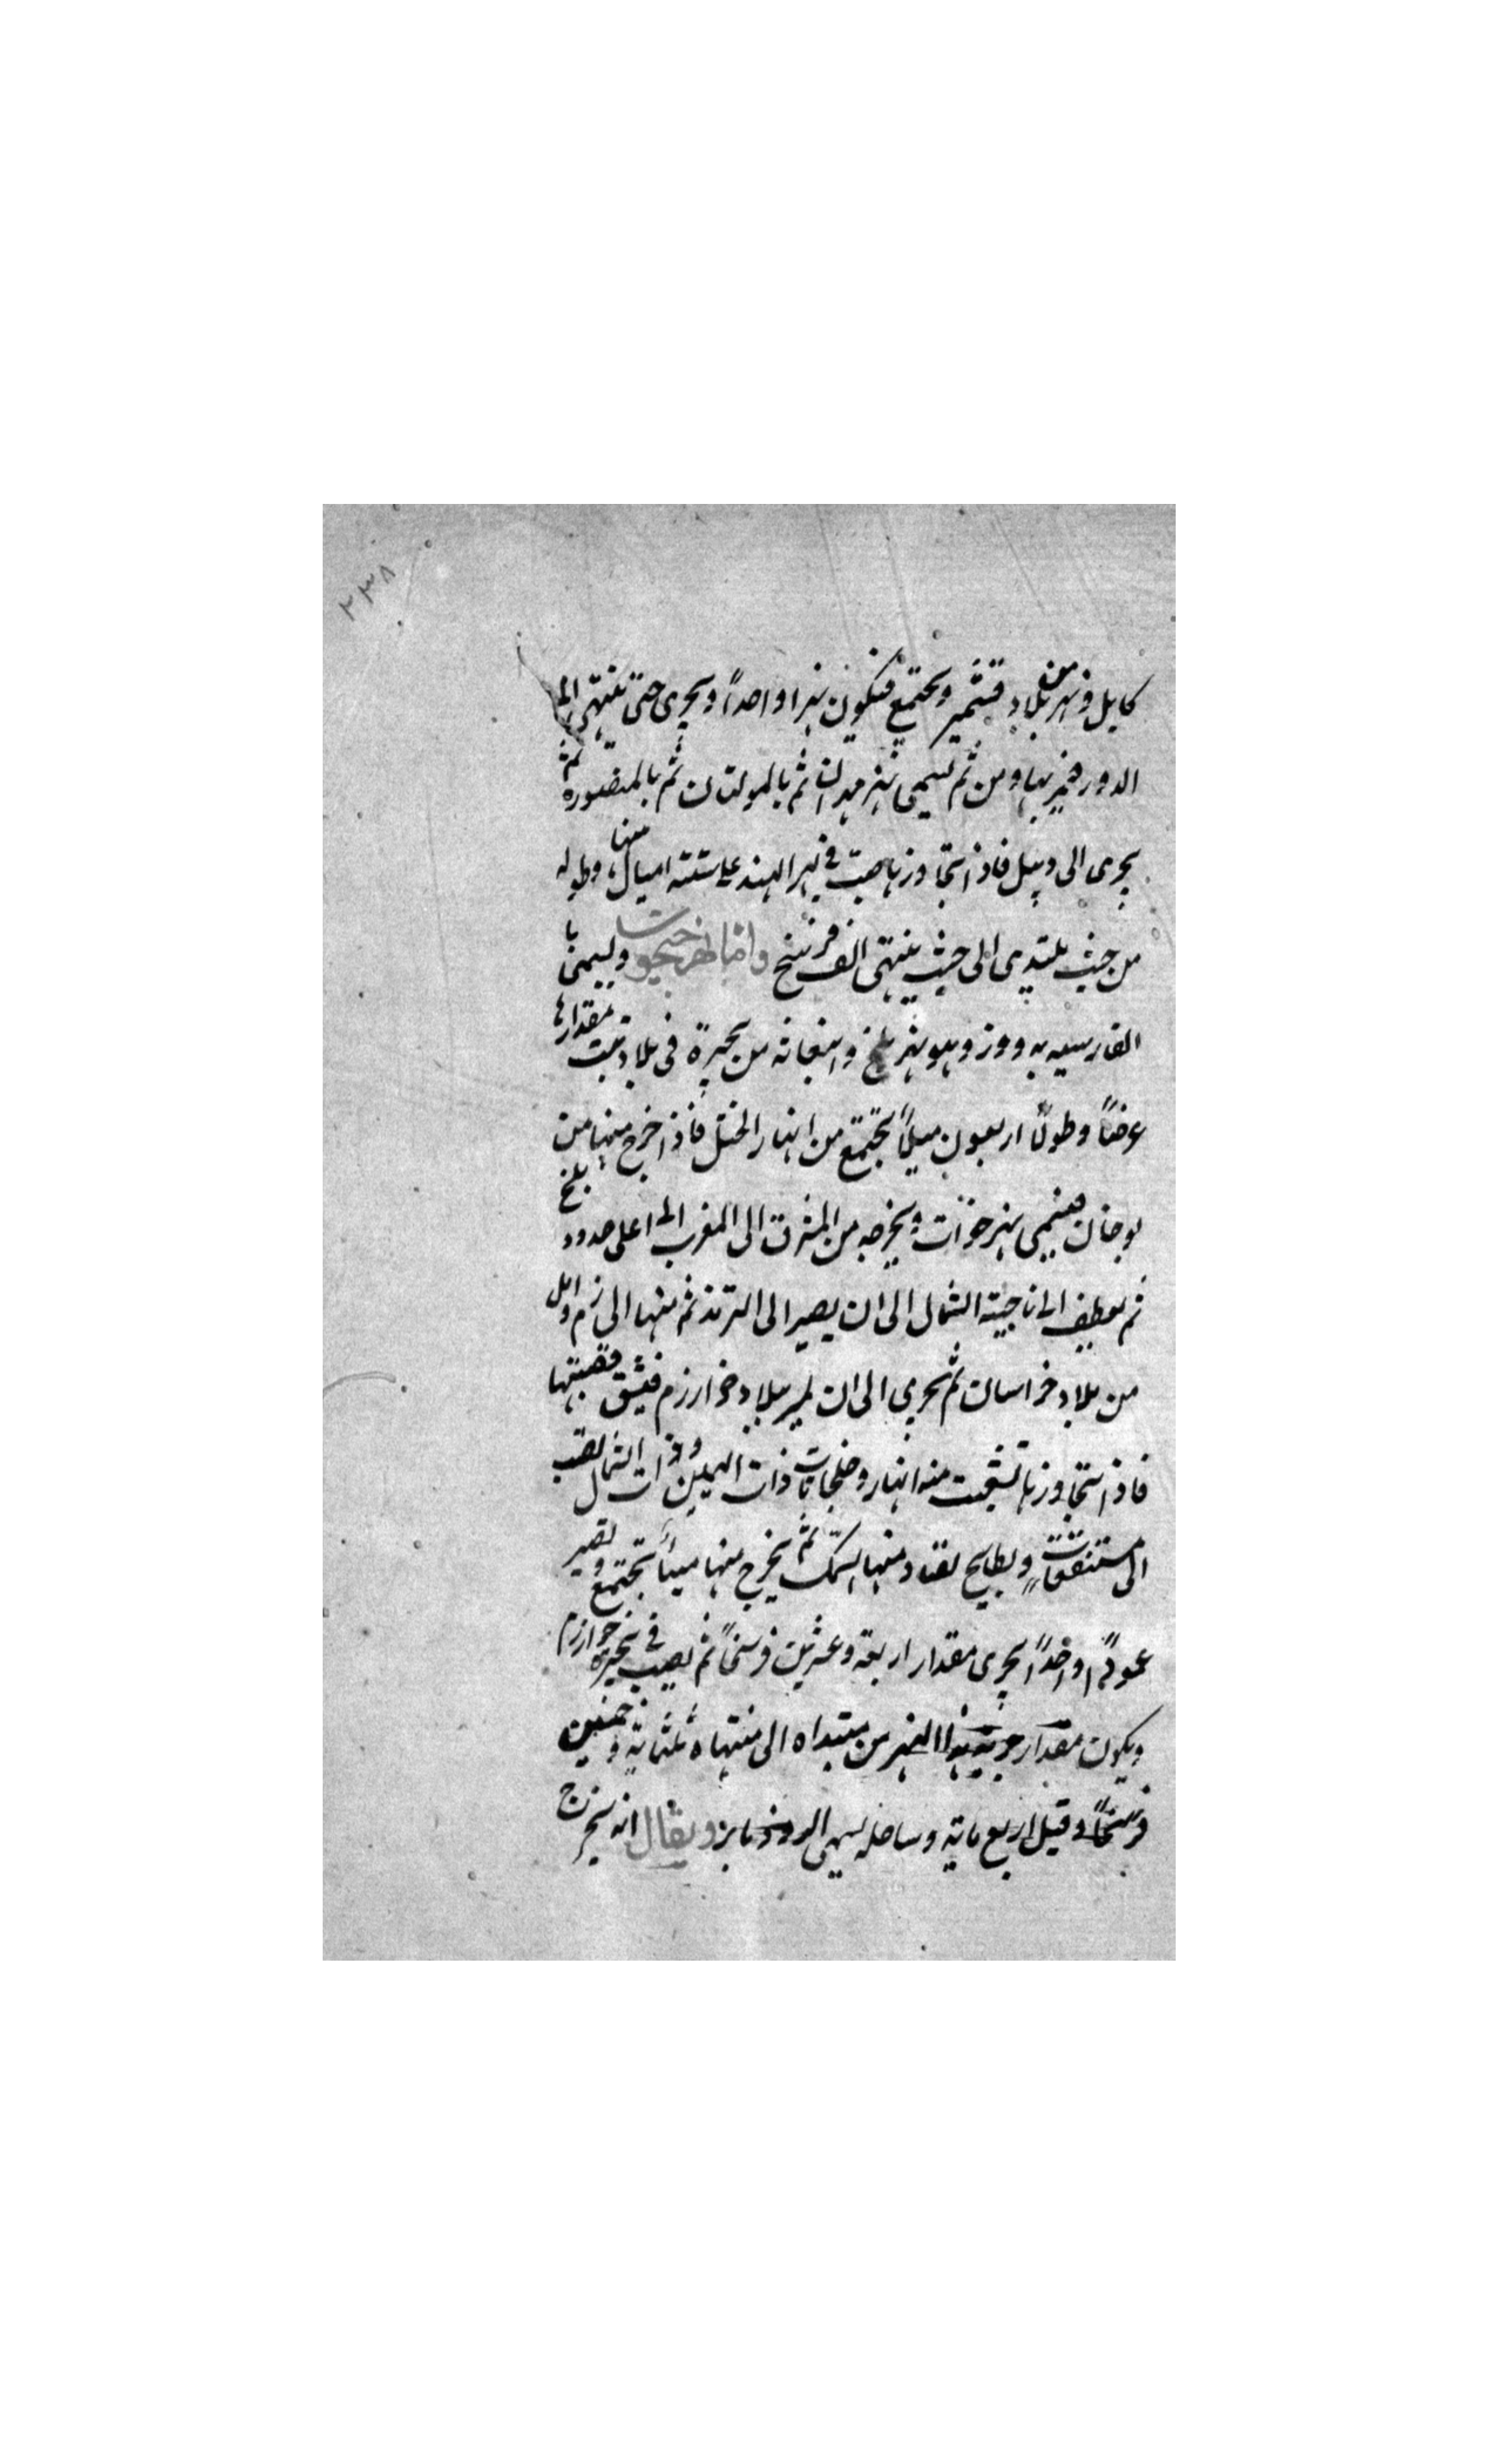 ٢٣٨
كابل ونهر من بلاد قشمير ويجتمع فيكون نهرا واحداً ويجرى حتى ينتهى الى
الدور فيمر بها ومن ثم يسمى نهر مهران ثم بالمولتان ثم بالمنصوره ثم
يجرى الى ديبل فاذا تجاوزها صب فى بحر الهند على ستة اميال منها وطوله
من حيث يبتدى الى حيث ينتهى الف فرسخ واما نهر جيحون ويسمى با
الفارسيه به روذ وهو نهر بلخ وانبعاثه من بحيرة فى بلاد تبت مقدارها
عرضاً وطولاً اربعون ميلاً تجتمع من انهار الختل فاذا خرج منها من
بوخان فيسمى نهر خزات ويخرجه من المشرق الى المغرب الى اعلى حدود بلخ
ثم يعطف الى ناحية الشمال الى ان يصير الى الترمذ ثم منها الى زم وامل
من بلاد خراسان ثم يجرى الى ان يمر ببلاد خوارزم فيشق قصبتها
فاذا تجاوزها تشعبت منه انهار وخلجانات ذات اليمين وذات الشمال تصب
الى مستنقعات وبطايح تصاد منها السمك ثم يخرج منها مياً تجتمع وتصير
عموداً واحداً يجرى مقدار اربعة وعشرين فرسخاً ثم يصب فى بحيرة خوارزم
ويكون مقدار جرية هذا النهر من مبتداه الى منتهاه ثلثماية وخمسين
فرسخاً وقيل اربع ماية وساحله يسمى الروذبار ويقال انه يخرج